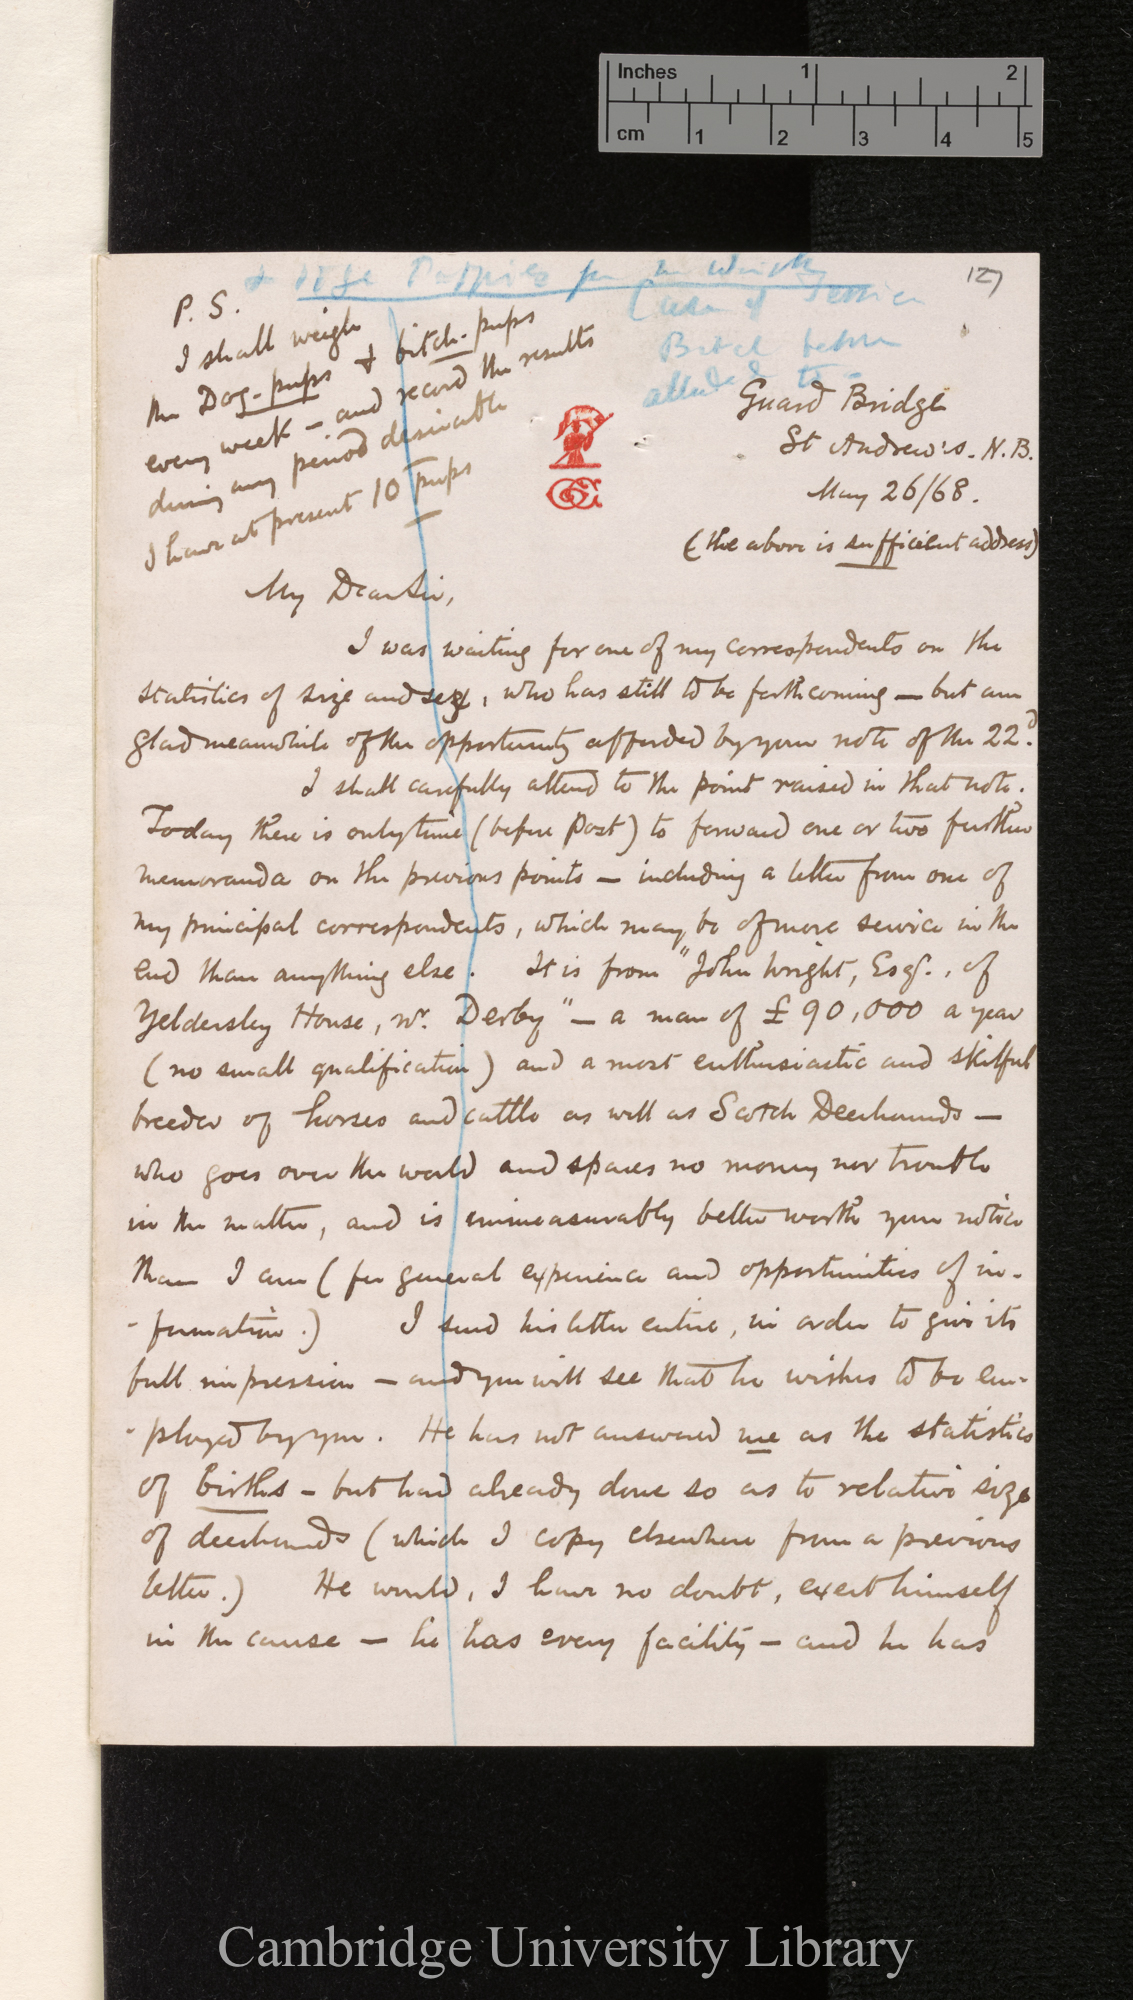 Inches 1 2
cm 1 2 3 4 5
127
Puppies for
Case of
Bitch before
alluded to
P. S.
I shall weigh
the Dog-pups & bitch-pups
every week – and record the results
during any period desirable
I have at present 10 pups
Guard Bridge
St Andrew's. N.B.
May 26/68.
(the above is sufficient address)
My Dear Sir,
I was waiting for one of my correspondents on the
statistics of size and sex, who has still to be forthcoming – but am
glad meanwhile of the opportunity afforded by your note of the 22d.
I shall carefully attend to the point raised in that note.
Today there is only time (before Post) to forward one or two further
memoranda on the previous points – including a letter from one of
my principal correspondents, which may be of more service in the
end than anything else. It is from "John Wright, Esq., of
Yeldersley House, nr. Derby" – a man of £90,000 a year
(no small qualification) and a most enthusiastic and skilful
breeder of horses and cattle as well as Scotch Deerhounds –
who goes over the world and spares no money nor trouble
in the matter, and is immeasurably better worth your notice
than I am (for general experience and opportunities of in-
-formation.) I send his letter entire, in order to give its
full impression – and you will see that he wishes to be em-
-ployed by you. He has not answered me as the statistics
of births – but had already done so as to relative size
of deerhounds (which I copy elsewhere from a previous
letter.) He would, I have no doubt, exert himself
in the cause – he has every facility – and he has
Cambridge University Library